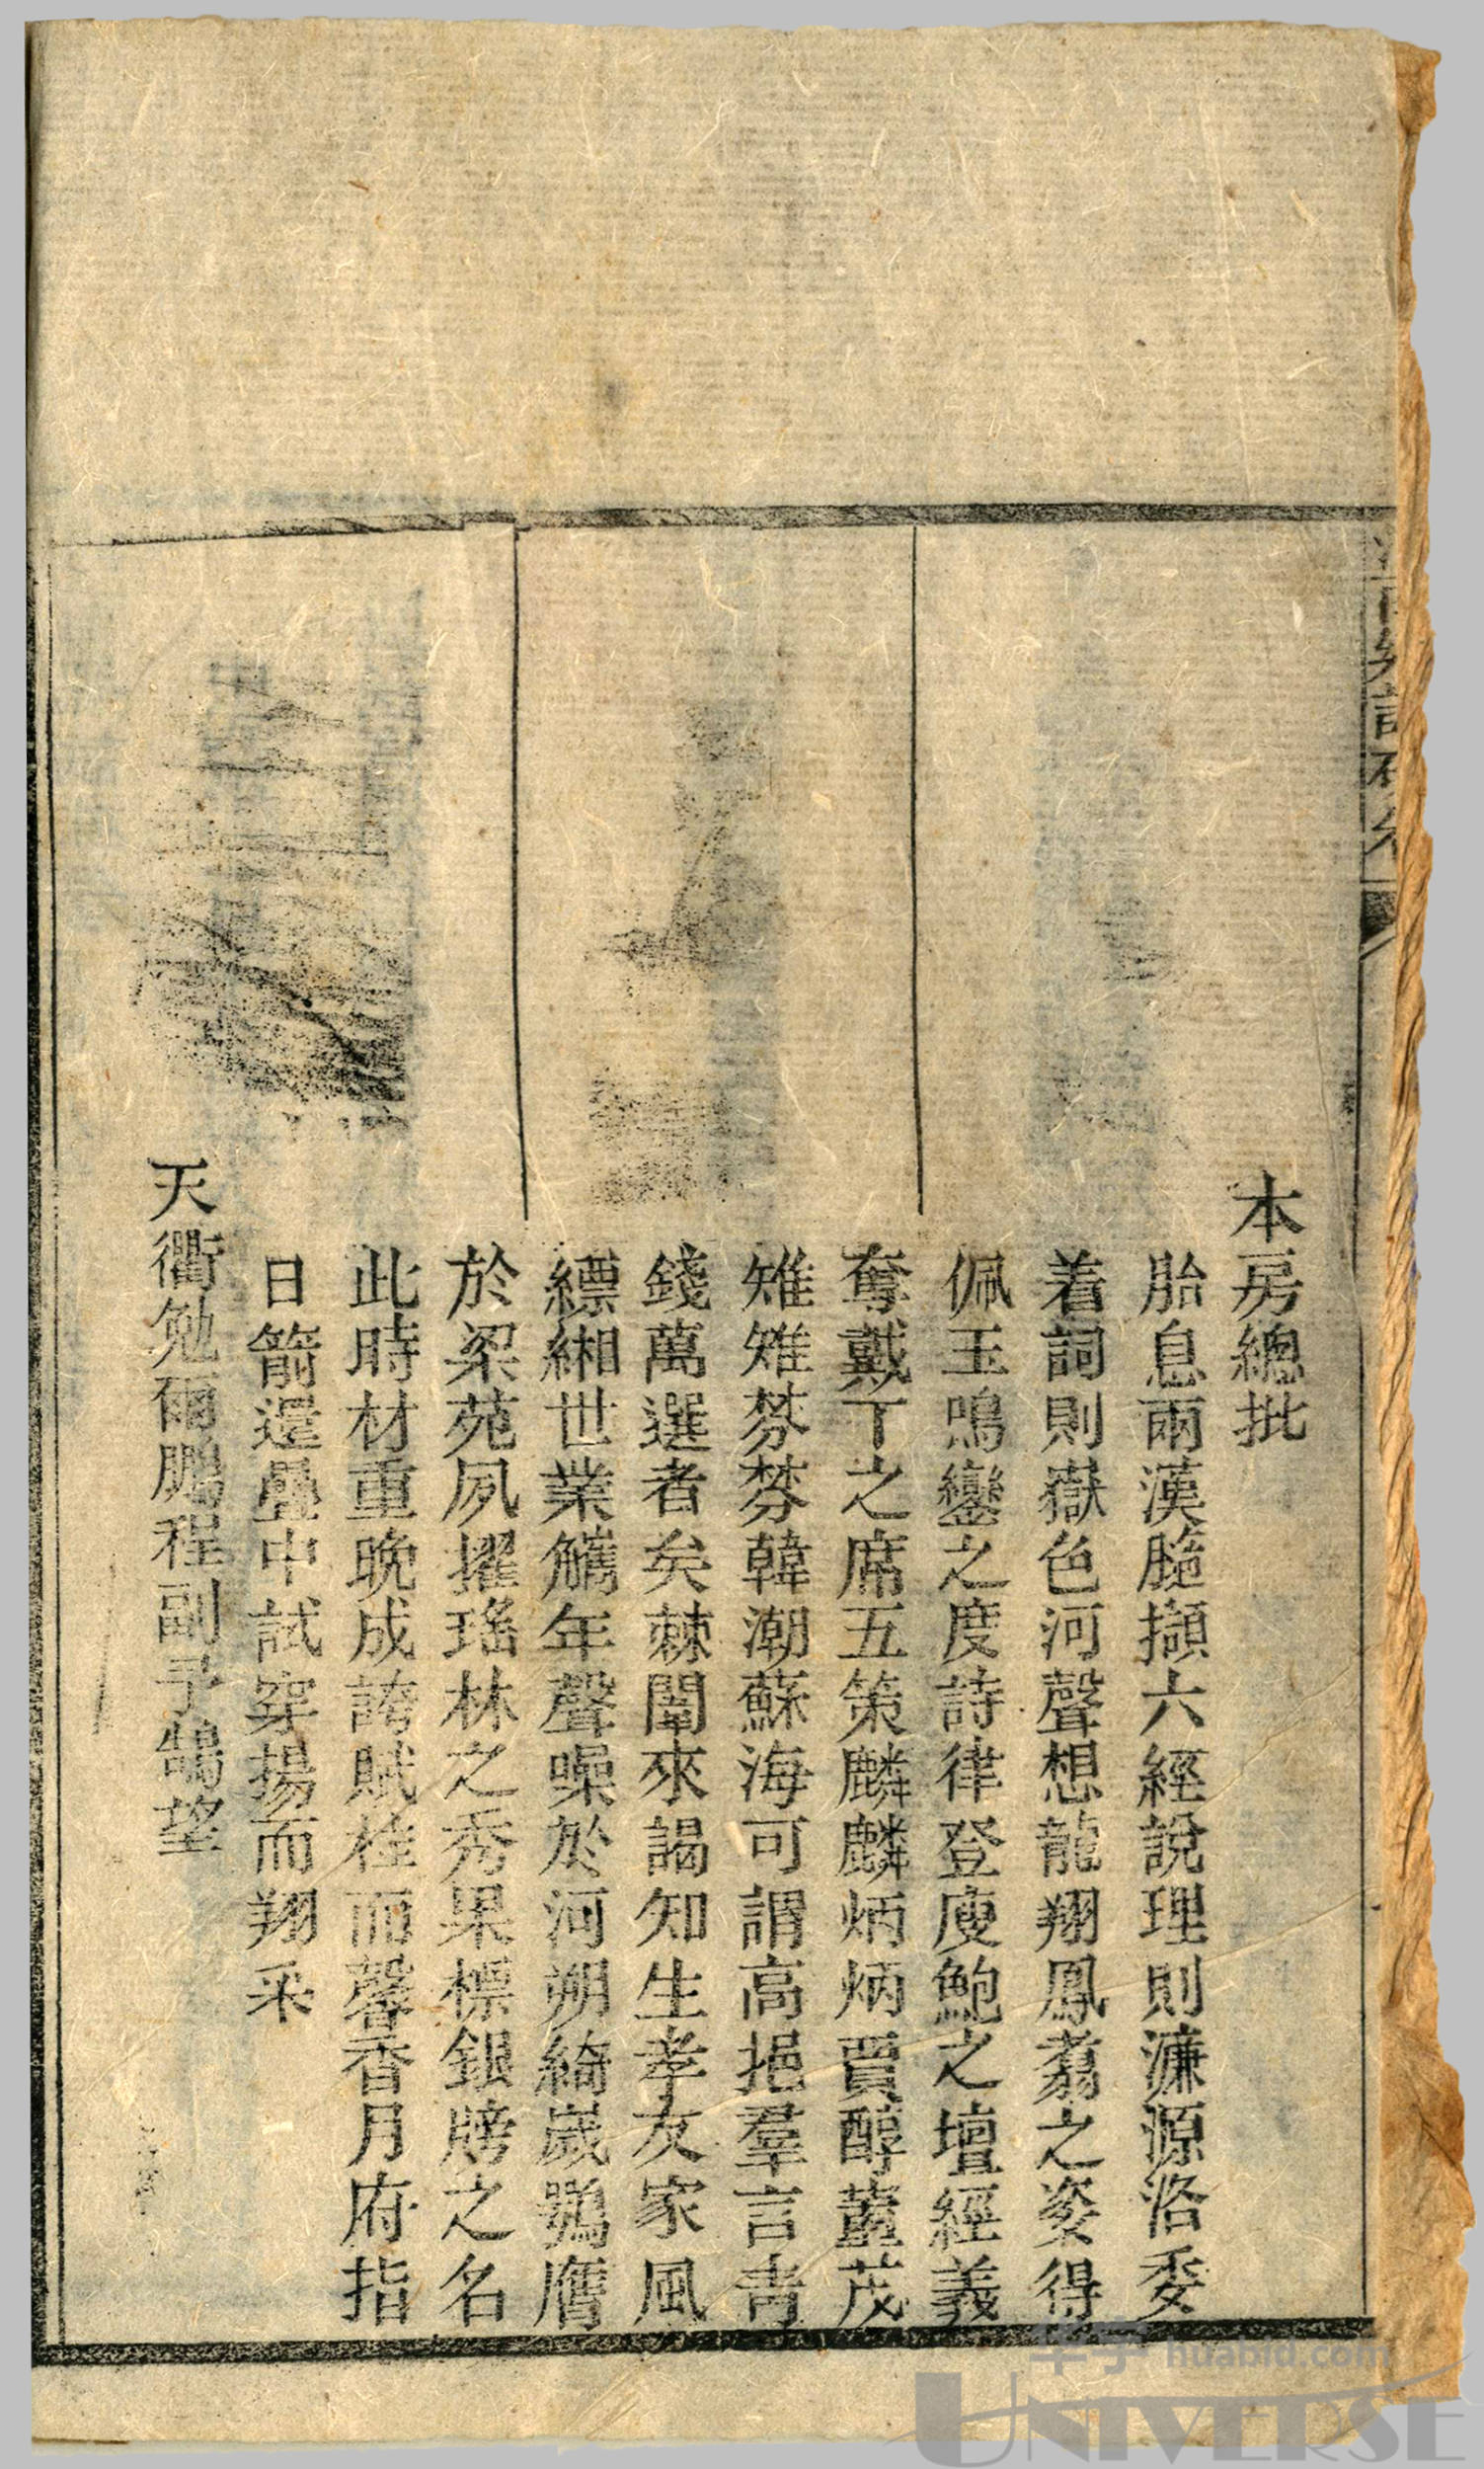 本房總批
胎息兩漢脆擷六經說理則濂源洛委
着詞則嶽色河聲想龍翔鳳翥之姿得
佩玉鳴鑾之度詩律登庾鮑之壇經義
奪戴丁之席五策麟麟炳炳賈醇董茂
雉雉棼棼韓潮蘇海可謂高挹羣言青
錢萬選者矣棘闈來謁知生孝友家風
縹緗世業觿年聲噪於河朔綺歲鶚膺
於梁苑夙擢瑤林之秀果標銀牓之名
此時材重晚成誇賦桂而馨香月府指
日箭還疊中試穿揚而翔采
天衢勉爾鵬程副予鵠望
華宇 huabid.com
UNIVERSE